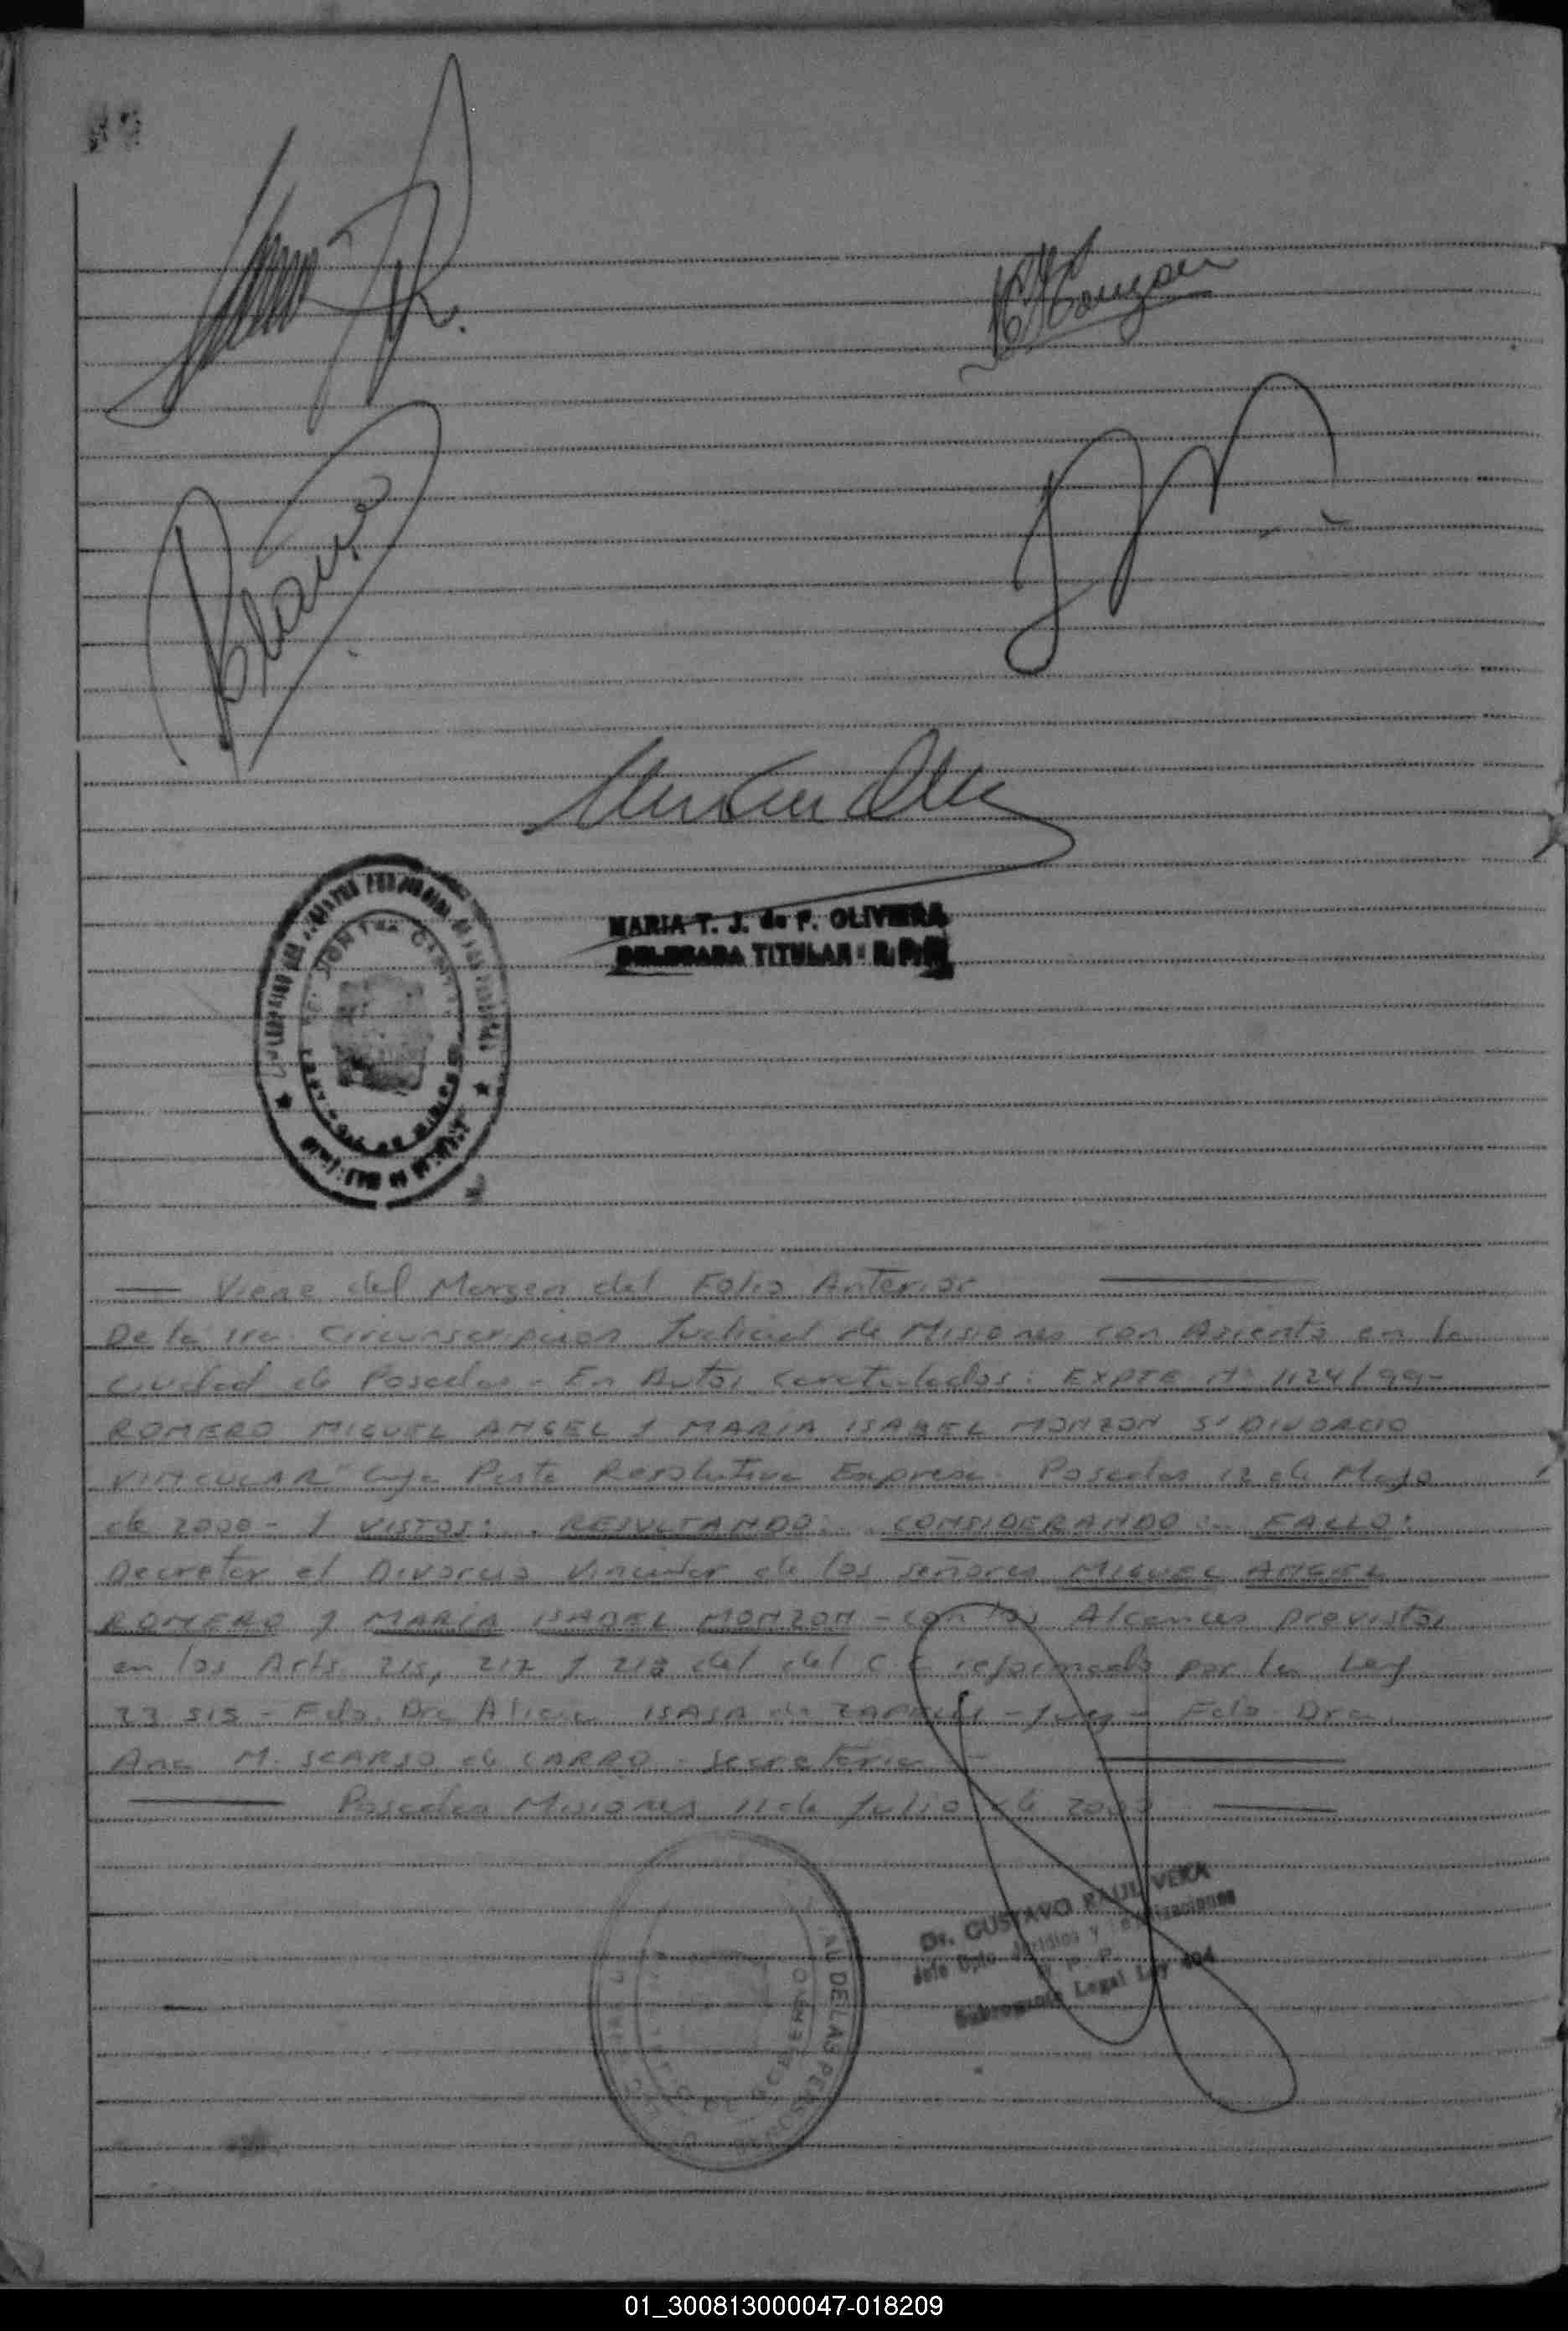 MARIA T. J. de P. OLIVEIRA
DELEGADA TITULAR R.P.P.
Viene del Margen del Folio Anterior
De la 1ra. Circunscripcion Judicial de Misiones con Asiento en la
ciudad de Posadas - En Autos Caratulados: EXPTE Nº 1124/99-
ROMERO MIGUEL ANGEL Y MARIA ISABEL MONZON S/ DIVORCIO
VINCULAR" Cuya Parte Resolutiva Expresa: Posadas 12 de Mayo
de 2000 - Y VISTOS: . RESULTANDO: . CONSIDERANDO: . FALLO:
Decretar el Divorcio Vincular de los señores MIGUEL ANGEL
ROMERO y MARIA ISABEL MONZON - con los Alcances previstos
en los Arts 217 y 218 del del C.C reformado por la Ley
23 515 - Fdo. Dra Alicia ISASA de - Juez - Fdo. Dra.
Ana M. SCARSO de CARRO - Secretaria -
Posadas Misiones 11 de Julio de
Dr. GUSTAVO RAUL VERA
Jefe Dpto
Subrogante Legal Ley
DE LAS PERSONAS
DE GOBIERNO
01_300813000047-018209